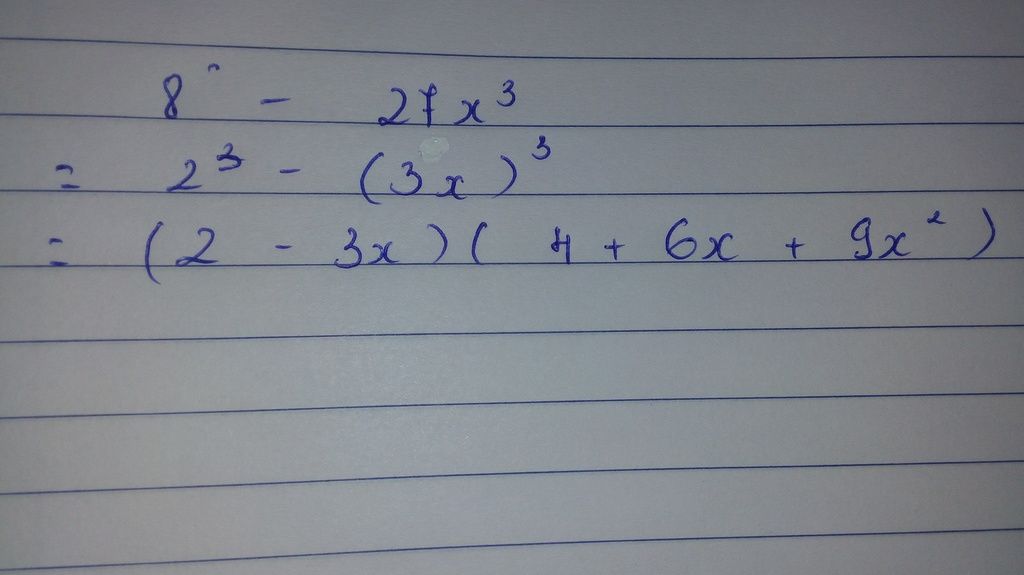 8 - 27x³
= 2³ - (3x)³
= (2 - 3x)(4 + 6x + 9x²)